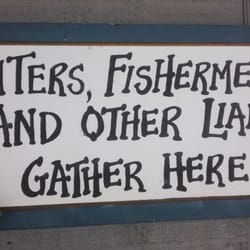 NTERS, FISHERME
AND OTHER LIAR
GATHER HERE